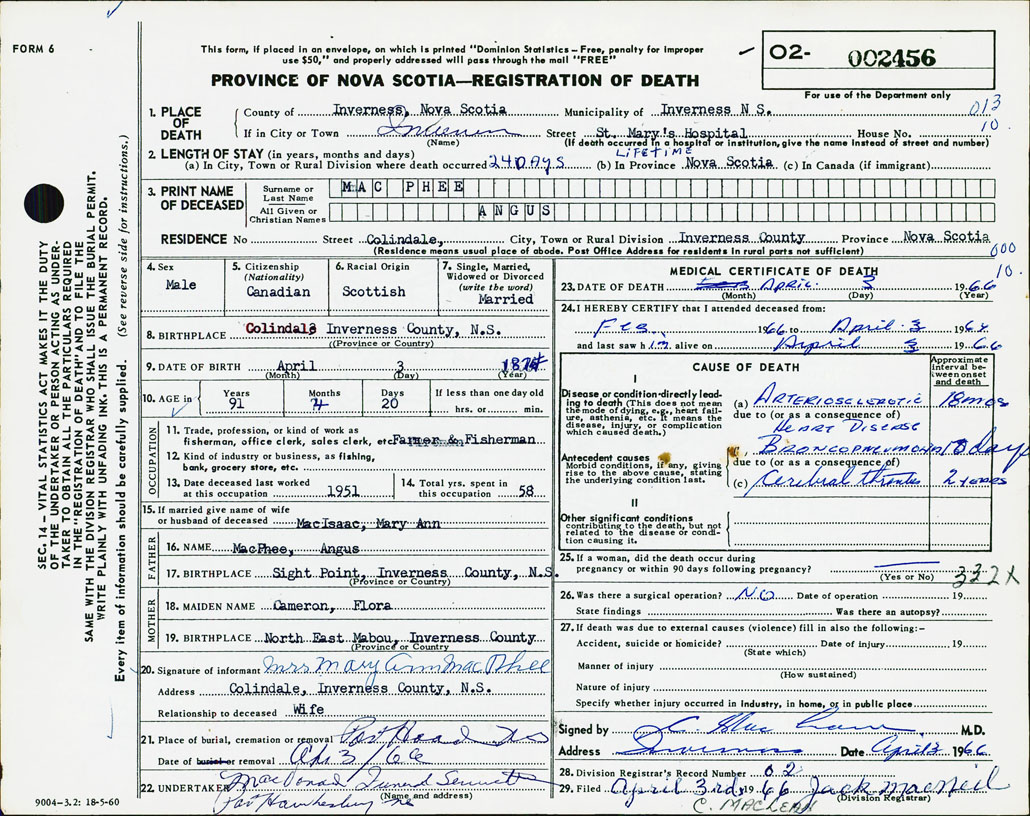 FORM 6
This form, if placed in an envelope, on which is printed "Dominion Statistics – Free, penalty for improper
use $50," and properly addressed will pass through the mail "FREE"
PROVINCE OF NOVA SCOTIA—REGISTRATION OF DEATH
02- 002456
For use of the Department only
013
10.
1. PLACE OF DEATH
County of Inverness, Nova Scotia Municipality of Inverness N S.
If in City or Town Inverness Street St. Mary's Hospital House No.
(Name) (If death occurred in a hospital or institution, give the name instead of street and number)
2. LENGTH OF STAY (in years, months and days) LIFETIME
(a) In City, Town or Rural Division where death occurred 24 DAYS (b) In Province Nova Scotia (c) In Canada (if immigrant)
3. PRINT NAME OF DECEASED
Surname or Last Name MAC PHEE
All Given or Christian Names ANGUS
RESIDENCE No Street Colindale, City, Town or Rural Division Inverness County Province Nova Scotia
(Residence means usual place of abode. Post Office Address for residents in rural parts not sufficient)
000
10.
4. Sex
Male
5. Citizenship
(Nationality)
Canadian
6. Racial Origin
Scottish
7. Single, Married, Widowed or Divorced
(write the word)
Married
8. BIRTHPLACE Colindale Inverness County, N.S.
(Province or Country)
9. DATE OF BIRTH April 3 1874
(Month) (Day) (Year)
10. AGE in
Years
91
Months
Days
20
If less than one day old
hrs. or min.
OCCUPATION
11. Trade, profession, or kind of work as
fisherman, office clerk, sales clerk, etc. Farmer & Fisherman
12. Kind of industry or business, as fishing,
bank, grocery store, etc.
13. Date deceased last worked
at this occupation 1951
14. Total yrs. spent in
this occupation 58
15. If married give name of wife
or husband of deceased MacIsaac, Mary Ann
FATHER
16. NAME MacPhee, Angus
17. BIRTHPLACE Sight Point, Inverness County, N.S.
(Province or Country)
MOTHER
18. MAIDEN NAME Cameron, Flora
19. BIRTHPLACE North East Mabou, Inverness County
(Province or Country)
20. Signature of informant Mrs Mary Ann MacPhee
Address Colindale, Inverness County, N.S.
Relationship to deceased Wife
21. Place of burial, cremation or removal Port Hood NS
Date of burial or removal Apr 3/66
22. UNDERTAKER MacDonald Funeral Service
(Name and address)
Port Hawkesbury NS
9004-3.2: 18-5-60
MEDICAL CERTIFICATE OF DEATH
23. DATE OF DEATH April 3 1966
(Month) (Day) (Year)
24. I HEREBY CERTIFY that I attended deceased from:
Feb. 1966 to April 3 196
and last saw him alive on April 3 1966
CAUSE OF DEATH
Approximate interval between onset and death
I
Disease or condition directly leading to death (This does not mean the mode of dying, e.g., heart failure, asthenia, etc. It means the disease, injury, or complication which caused death.)
(a) ARTERIOSCLEROTIC 18 mos
due to (or as a consequence of)
HEART DISEASE
Antecedent causes
Morbid conditions, if any, giving rise to the above cause, stating the underlying condition last.
BRONCOPNEUMONIA days
due to (or as a consequence of)
(c) Cerebral thrombus 2 years
II
Other significant conditions
contributing to the death, but not related to the disease or condition causing it.
25. If a woman, did the death occur during
pregnancy or within 90 days following pregnancy?
(Yes or No)
332X
26. Was there a surgical operation? NO Date of operation 19
State findings Was there an autopsy?
27. If death was due to external causes (violence) fill in also the following:–
Accident, suicide or homicide? Date of injury 19
(State which)
Manner of injury
(How sustained)
Nature of injury
Specify whether injury occurred in industry, in home, or in public place
Signed by C. MacLean M.D.
Address Inverness Date April 3 1966
28. Division Registrar's Record Number 02
29. Filed April 3rd 1966 Jack MacNeil
(Division Registrar)
C. MACLEAN
SEC. 14 – VITAL STATISTICS ACT MAKES IT THE DUTY
OF THE UNDERTAKER OR PERSON ACTING AS UNDER-
TAKER TO OBTAIN ALL THE PARTICULARS REQUIRED
IN THE "REGISTRATION OF DEATH" AND TO FILE THE
SAME WITH THE DIVISION REGISTRAR WHO SHALL ISSUE THE BURIAL PERMIT.
WRITE PLAINLY WITH UNFADING INK. THIS IS A PERMANENT RECORD.
Every item of information should be carefully supplied. (See reverse side for instructions.)